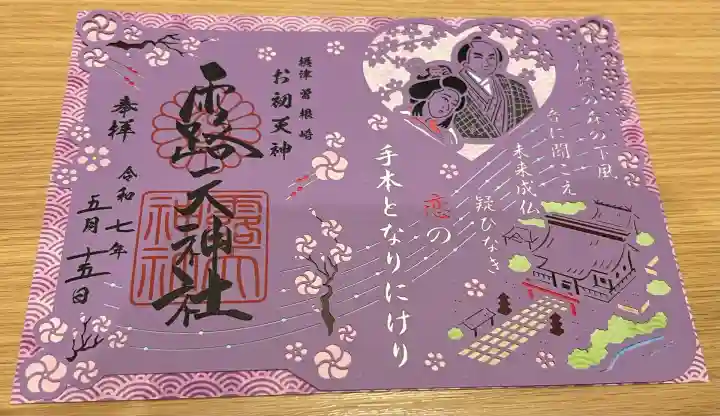 曽根崎の森の下風
音に聞こえ
未来成仏
疑ひなき
恋の
手本となりにけり
攝津 曽根崎
お初天神
露天神社
露天神社
奉拝
令和七年
五月十五日